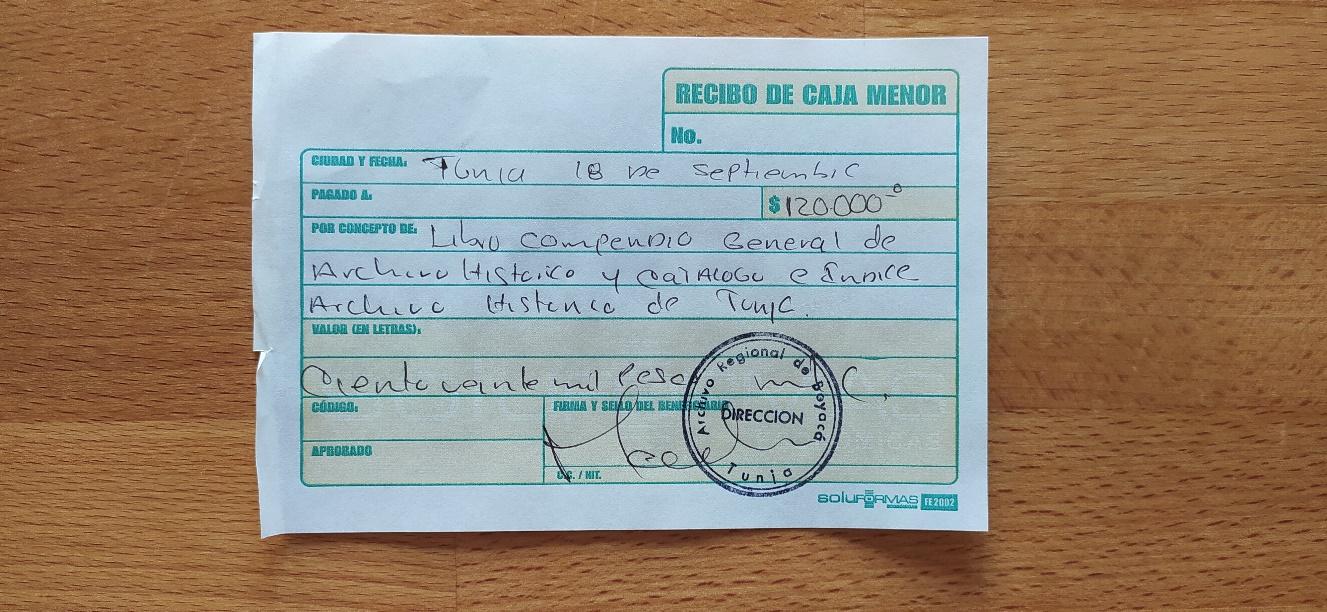 RECIBO DE CAJA MENOR
No.
CIUDAD Y FECHA: Tunja 18 de septiembre
PAGADO A: $120.000-o
POR CONCEPTO DE: Libro compendio General de
Archivo Historico y catalogo e Indice
Archivo Historico de Tunja.
VALOR (EN LETRAS):
Ciento veinte mil Pesos m C,
CÓDIGO: FIRMA Y SELLO DEL BENEFICIARIO
APROBADO
C.C. / NIT.
Archivo Regional de Boyacá
DIRECCION
Tunja
SOLUFORMAS FE 2002